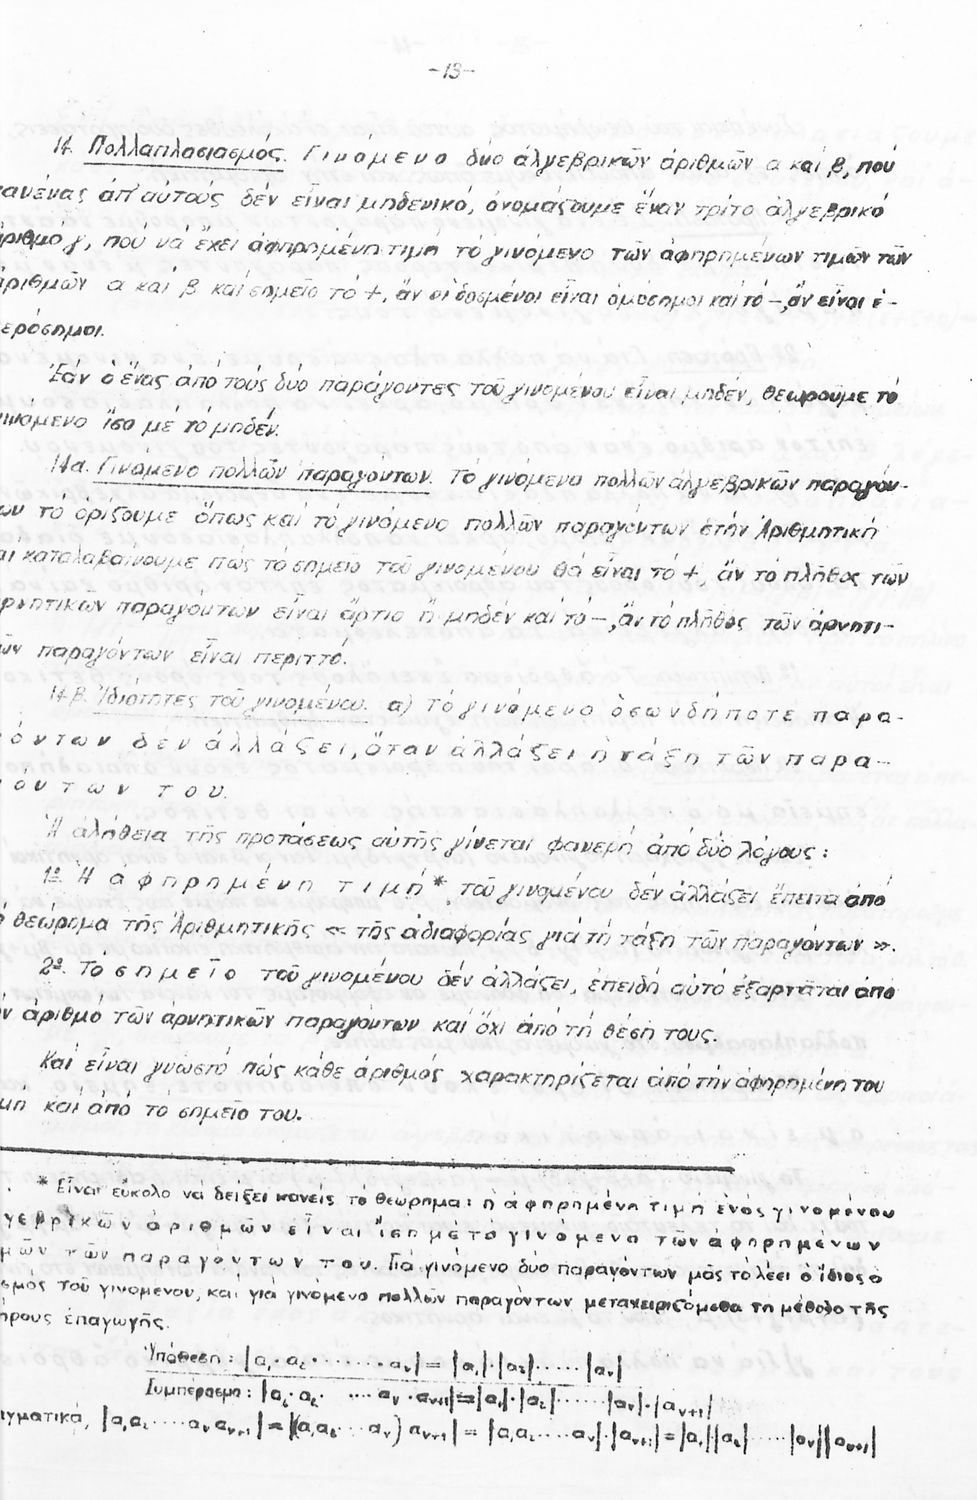 -13-
14. Πολλαπλασιασμός. Γινόμενο δύο ἀλγεβρικῶν ἀριθμῶν α καί β, πού
κανένας ἀπ' αὐτούς δέν εἶναι μηδενικό, ὀνομάζουμε ἕναν τρίτο ἀλγεβρικό
ἀριθμο γ, πού νά ἔχει ἀφηρημένη τιμη τό γινόμενο τῶν ἀφηρημένων τιμῶν τῶν
ἀριθμῶν α καί β καί σημεῖο το +, ἄν οἱ δοσμένοι εἶναι ὁμόσημοι καί τό -, ἄν εἶναι ἑ-
ερόσημοι.
Ἐάν ὁ ἕνας ἀπό τούς δύο παράγοντες τοῦ γινομένου εἶναι μηδέν, θεωροῦμε τό
ινόμενο ἴσο μέ τό μηδέν.
14α. Γινόμενο πολλῶν παραγοντων. Τό γινόμενο πολλῶν ἀλγεβρικῶν παραγόν-
ων τό ὁρίζουμε ὅπως καί τό γινόμενο πολλῶν παραγόντων στήν Ἀριθμητική
αι καταλαβαίνουμε πώς τό σημεῖο τοῦ γινομένου θά εἶναι τό +, ἄν τό πλῆθος τῶν
ρνητικῶν παραγόντων εἶναι ἄρτιο ἤ μηδέν καί τό -, ἄν τό πλῆθος τῶν ἀρνητι-
ῶν παραγόντων εἶναι περιττό.
14.β. Ἰδιότητες τοῦ γινομένου. α) Τό γινόμενο ὁσωνδήποτε παρα-
όντων δέν ἀλλάζει, ὅταν ἀλλάζει ἡ τάξη τῶν παρα-
όντων του.
Ἡ ἀλήθεια τῆς προτάσεως αὐτῆς γίνεται φανερή ἀπό δύο λόγους:
1º. Ἡ ἀφηρημένη τιμή* τοῦ γινομένου δέν ἀλλάζει ἔπειτα ἀπό
ό θεώρημα τῆς Ἀριθμητικῆς « τῆς ἀδιαφορίας γιά τή τάξη τῶν παραγόντων ».
2º. Τό σημεῖο τοῦ γινομένου δέν ἀλλάζει, ἐπειδή αὐτό ἐξαρτᾶται ἀπό
ν ἀριθμό τῶν ἀρνητικῶν παραγόντων καί ὄχι ἀπό τή θέση τους.
Καί εἶναι γνωστό πώς κάθε ἀριθμός χαρακτηρίζεται ἀπό τήν ἀφηρημένη του
μή καί ἀπό τό σημεῖο του.
* Εἶναι εὔκολο νά δείξει κανείς το θεώρημα: ἡ ἀφηρημένη τιμή ἑνός γινομένου
γεβρικῶν ἀριθμῶν εἶναι ἴση μέ το γινόμενο τῶν ἀφηρημένων
μῶν τῶν παραγόντων του. Γιά γινόμενο δύο παραγόντων μᾶς το λέει ὁ ἴδιος ὁ
σμός τοῦ γινομένου, καί γιά γινόμενο πολλῶν παραγόντων μεταχειριζόμεθα τη μέθοδο τῆς
ήρους ἐπαγωγῆς.
Ὑπόθεση: |α₁·α₂·.....αᵥ|=|α₁|·|α₂|......|αᵥ|
Συμπέρασμα: |α₁·α₂.....αᵥ·αᵥ₊₁|=|α₁|·|α₂|......|αᵥ|·|αᵥ₊₁|
ιγματικά, |α₁α₂.....αᵥαᵥ₊₁|=|(α₁α₂...αᵥ)αᵥ₊₁|=|α₁α₂....αᵥ|·|αᵥ₊₁|=|α₁||α₂|.....|αᵥ||αᵥ₊₁|